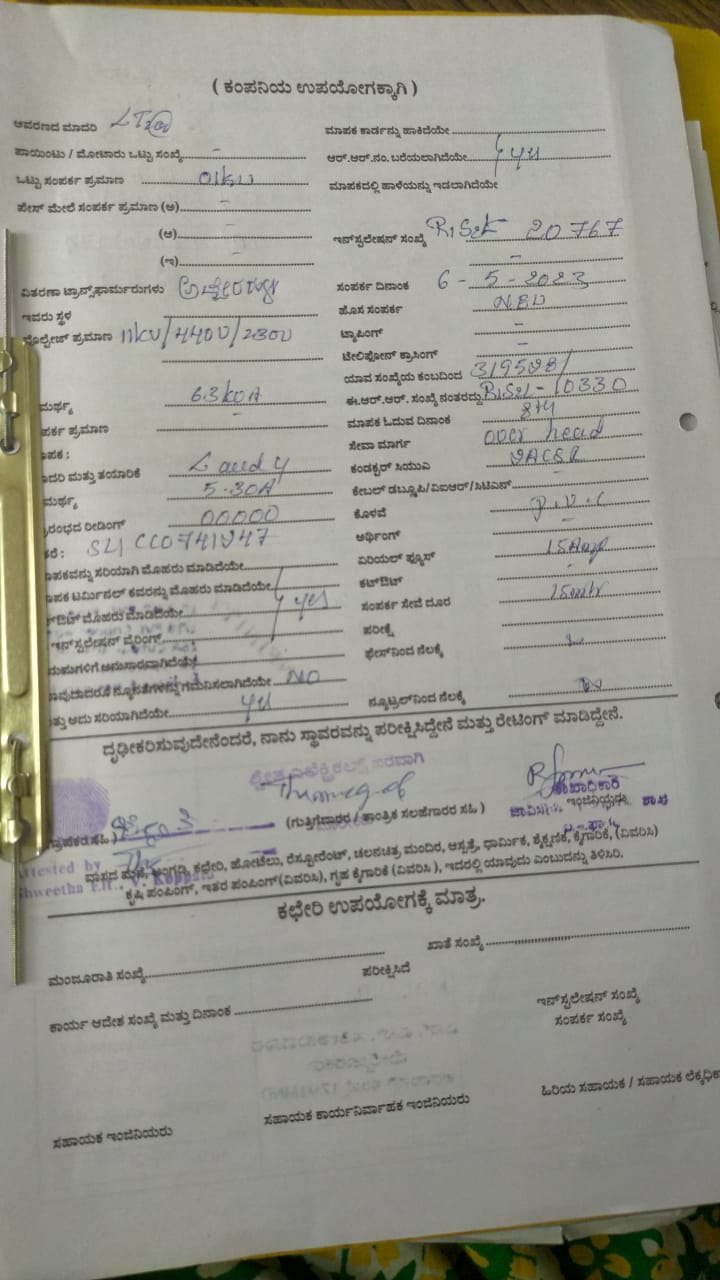 ( ಕಂಪನಿಯ ಉಪಯೋಗಕ್ಕಾಗಿ )
ಆವರಣದ ಮಾದರಿ
ಮಾಪಕ ಕಾರ್ಡನ್ನು ಹಾಕಿದೆಯೇ
ಪಾಯಿಂಟು / ಮೋಟಾರು ಒಟ್ಟು ಸಂಖ್ಯೆ -
ಆರ್.ಆರ್.ನಂ. ಬರೆಯಲಾಗಿದೆಯೇ yes
ಒಟ್ಟು ಸಂಪರ್ಕ ಪ್ರಮಾಣ
ಮಾಪಕದಲ್ಲಿ ಹಾಳೆಯನ್ನು ಇಡಲಾಗಿದೆಯೇ
ಫೇಸ್ ಮೇಲೆ ಸಂಪರ್ಕ ಪ್ರಮಾಣ (ಅ) -
(ಆ) -
ಇನ್‌ಸ್ಪಲೇಷನ್ ಸಂಖ್ಯೆ 20767
(ಇ) -
ವಿತರಣಾ ಟ್ರಾನ್ಸ್‌ಫಾರ್ಮರುಗಳು
ಸಂಪರ್ಕ ದಿನಾಂಕ 6-5-2023
ಇವರು ಸ್ಥಳ
ಹೊಸ ಸಂಪರ್ಕ NEW
ವೋಲ್ಟೇಜ್ ಪ್ರಮಾಣ 11KV/440V/230V
ಟ್ಯಾಪಿಂಗ್ -
ಟೆಲಿಫೋನ್ ಕ್ರಾಸಿಂಗ್ -
ಯಾವ ಸಂಖ್ಯೆಯ ಕಂಬದಿಂದ
ಮರ್ಥ್ಯ 63KVA
ಈ.ಆರ್.ಆರ್. ಸಂಖ್ಯೆ ನಂತರದ್ದು 10330
ಪರ್ಕ ಪ್ರಮಾಣ -
ಮಾಪಕ ಓದುವ ದಿನಾಂಕ 8th
ಪಕ :
ಸೇವಾ ಮಾರ್ಗ over head
ಾದರಿ ಮತ್ತು ತಯಾರಿಕೆ L and
ಕಂಡಕ್ಟರ್ ಸಿಯುಎ
ಮರ್ಥ್ಯ 5-30A
ಕೇಬಲ್ ಡಬ್ಲೂಪಿ/ವಿಐಆರ್/ಸಿಟಿಎಸ್
ರಂಭದ ರೀಡಿಂಗ್ 00000
ಕೊಳವೆ P.V.C
ಅರ್ಥಿಂಗ್ -
ಾಪಕವನ್ನು ಸರಿಯಾಗಿ ಮೊಹರು ಮಾಡಿದೆಯೇ
ಏರಿಯಲ್ ಫ್ಯೂಸ್ 15Amp
ಾಪಕ ಟರ್ಮಿನಲ್ ಕವರನ್ನು ಮೊಹರು ಮಾಡಿದೆಯೇ
ಕಟ್‌ಔಟ್ -
ಔಟ್ ಮೊಹರು ಮಾಡಿದೆಯೇ yes
ಸಂಪರ್ಕ ಸೇವೆ ದೂರ 15mtr
ಇನ್‌ಸ್ಪಲೇಷನ್ ವೈರಿಂಗ್
ಪರೀಕ್ಷೆ
ಮಗಳಿಗೆ ಅನುಸಾರವಾಗಿದೆಯೆ
ಫೇಸ್‌ನಿಂದ ನೆಲಕ್ಕೆ
ಾವುದಾದರೂ ನ್ಯೂನತೆಗಳನ್ನು ಗಮನಿಸಲಾಗಿದೆಯೇ NO
ತ್ತು ಅದು ಸರಿಯಾಗಿದೆಯೇ yes
ನ್ಯೂಟ್ರಲ್‌ನಿಂದ ನೆಲಕ್ಕೆ
ದೃಢೀಕರಿಸುವುದೇನೆಂದರೆ, ನಾನು ಸ್ಥಾವರವನ್ನು ಪರೀಕ್ಷಿಸಿದ್ದೇನೆ ಮತ್ತು ರೇಟಿಂಗ್ ಮಾಡಿದ್ದೇನೆ.
ಶ್ವೇತ ಎಲೆಕ್ಟ್ರಿಕಲ್ಸ್ ಪರವಾಗಿ
ಶಾಖಾಧಿಕಾರಿ
ಗ್ರಾಹಕರ ಸಹಿ )
(ಗುತ್ತಿಗೆದಾರರ / ತಾಂತ್ರಿಕ ಸಲಹೆಗಾರರ ಸಹಿ )
ಇಂಜಿನಿಯರು
Attested by
Shweetha Ele., V. Koppalu
ವಾಸದ ಮನೆ, ಅಂಗಡಿ, ಕಛೇರಿ, ಹೋಟೆಲು, ರೆಸ್ಟೋರೆಂಟ್, ಚಲನಚಿತ್ರ ಮಂದಿರ, ಆಸ್ಪತ್ರೆ, ಧಾರ್ಮಿಕ, ಶೈಕ್ಷಣಿಕ, ಕೈಗಾರಿಕೆ, (ವಿವರಿಸಿ)
ಕೃಷಿ ಪಂಪಿಂಗ್, ಇತರ ಪಂಪಿಂಗ್ (ವಿವರಿಸಿ), ಗೃಹ ಕೈಗಾರಿಕೆ (ವಿವರಿಸಿ ), ಇದರಲ್ಲಿ ಯಾವುದು ಎಂಬುದನ್ನು ತಿಳಿಸಿರಿ.
ಕಛೇರಿ ಉಪಯೋಗಕ್ಕೆ ಮಾತ್ರ.
ಮಂಜೂರಾತಿ ಸಂಖ್ಯೆ
ಖಾತೆ ಸಂಖ್ಯೆ
ಪರೀಕ್ಷಿಸಿದೆ
ಕಾರ್ಯ ಆದೇಶ ಸಂಖ್ಯೆ ಮತ್ತು ದಿನಾಂಕ
ಇನ್‌ಸ್ಪಲೇಷನ್ ಸಂಖ್ಯೆ
ಸಂಪರ್ಕ ಸಂಖ್ಯೆ
ಸಹಾಯಕ ಇಂಜಿನಿಯರು
ಸಹಾಯಕ ಕಾರ್ಯನಿರ್ವಾಹಕ ಇಂಜಿನಿಯರು
ಹಿರಿಯ ಸಹಾಯಕ / ಸಹಾಯಕ ಲೆಕ್ಕಾಧಿಕಾ